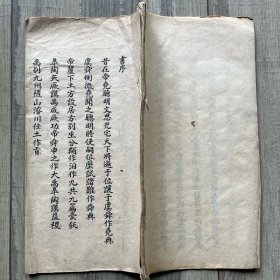 書序
昔在帝堯聰明文思光宅天下將遜于位讓于虞舜作堯典
虞舜側微堯聞之聰明將使嗣位歷試諸難作舜典
帝釐下土方設居方別生分類作汩作九共九篇槀飫
皋陶矢厥謨禹成厥功帝舜申之作大禹皋陶謨益稷
禹別九州隨山濬川任土作貢